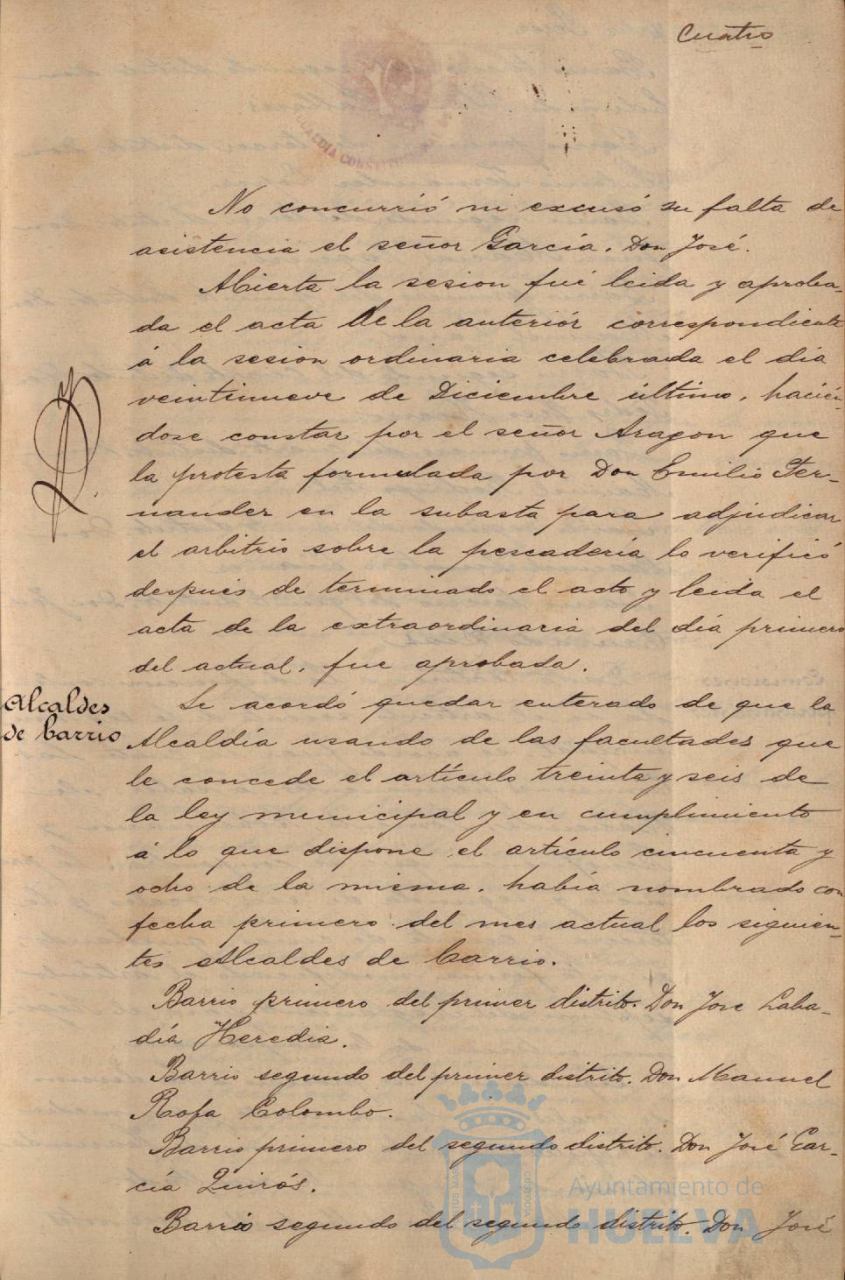 Cuatro
No concurrió ni excusó su falta de
asistencia el señor García. Don José.
Abierta la sesion fué leida y aproba-
da el acta de la anteriór correspondiente
á la sesion ordinaria celebrada el día
veintinueve de Diciembre último, hacién-
dose constar por el señor Aragon que
la protesta formulada por Don Emilio Fer-
nander en la subasta para adjudicar
el arbitrio sobre la pescadería lo verificó
después de terminado el acto y leida el
acta de la extraordinaria del día primero
del actual, fue aprobada.
Alcaldes
de barrio
Se acordó quedar enterado de que la
Alcaldía usando de las facultades que
le concede el artículo treinta y seis de
la ley municipal y en cumplimiento
á lo que dispone el artículo cincuenta y
ocho de la misma, había nombrado con
fecha primero del mes actual los siguien-
tes Alcaldes de barrio.
Barrio primero del primer distrito. Don Jose Laba-
día Heredia.
Barrio segundo del primer distrito. Don Manuel
Rofa Colombo.
Barrio primero del segundo distrito. Don José Gar-
cía Quirós.
Barrio segundo del segundo distrito. Don José
Ayuntamiento de
HUELVA